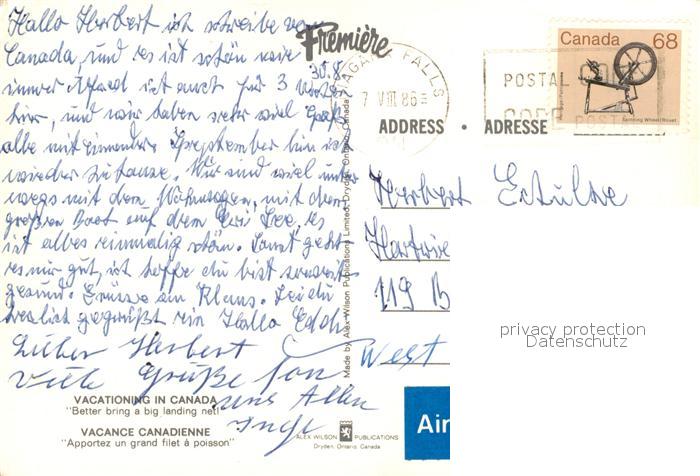 Hallo Herbert ich schreibe von
Canada, und es ist schön wie
immer ist auch für 3
hier, und wir haben sehr viel Spaß
alle miteinander September bin ich
wieder zuhause. Wir sind viel unter
wegs mit dem Wohnwagen, mit dem
großen Boot auf dem Eri See, es
ist alles einmalig schön. Sonst geht
es mir gut, ich hoffe du bist soweit
gesund. Grüsse an Klaus. Sei du
herzlich gegrüßt ein Hallo
30.8.
Lieber Herbert
Viele Grüße von
uns Allen
Inge
VACATIONING IN CANADA
"Better bring a big landing net!"
VACANCE CANADIENNE
"Apportez un grand filet à poisson"
Première
Made by Alex Wilson Publications Limited, Dryden, Ontario, Canada
ALEX WILSON PUBLICATIONS
Dryden, Ontario, Canada
NIAGARA FALLS
7 VIII 86
POSTAL CODE
CODE POSTAL
Canada 68
Spinning Wheel/Rouet
ADDRESS • ADRESSE
Herbert
119 B
West
Air
privacy protection
Datenschutz